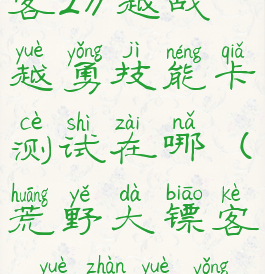 客2》越战
yuè yǒng jì néng qiǎ
越勇技能卡
cè shì zài nǎ
测试在哪（
huāng yě dà biāo kè
荒野大镖客
yuè zhàn yuè yǒng